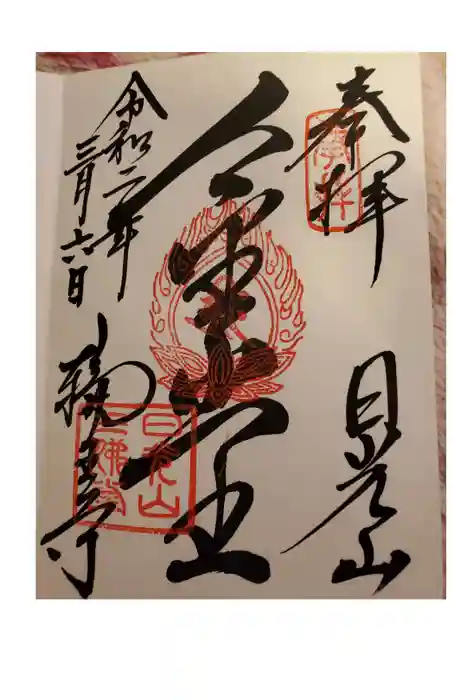 奉拝
日光山
金堂
令和二年
三月六日
輪王寺
日光山
三佛堂